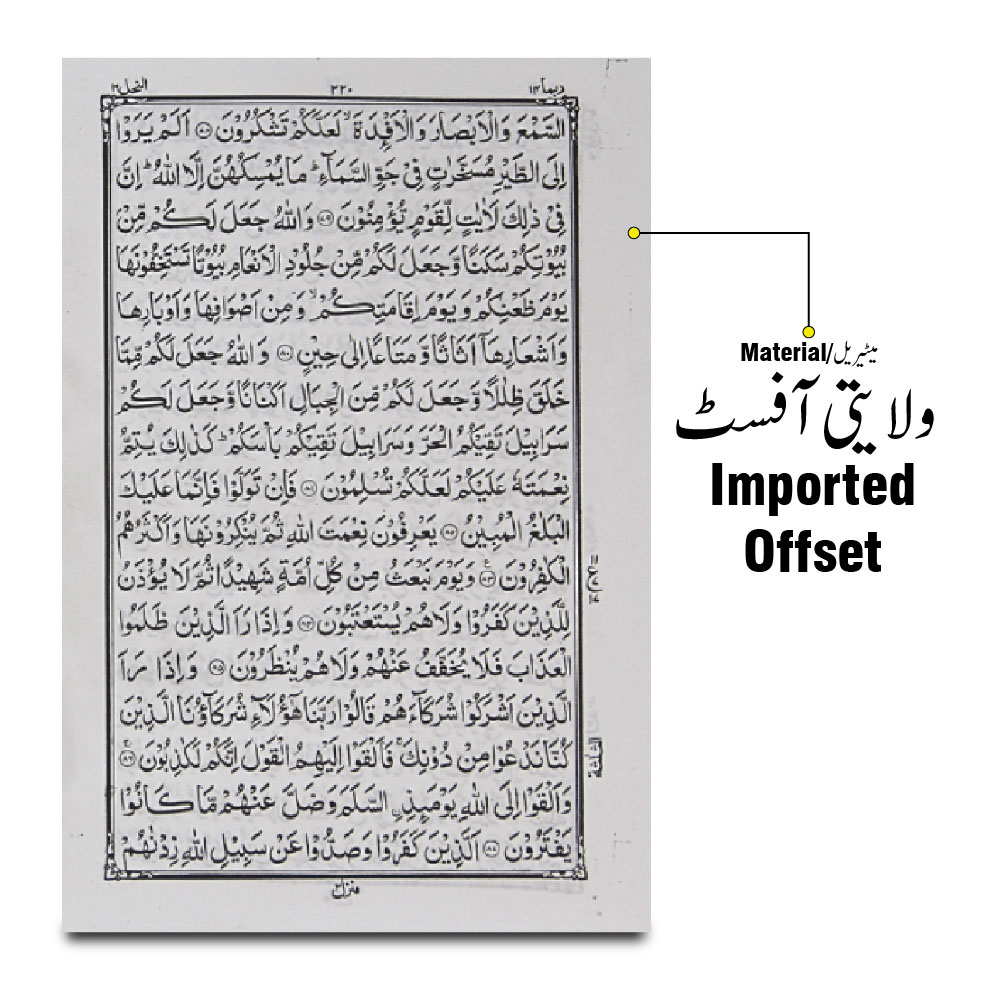 ربما ١٤ ٢٢٠ النحل ١٦
السَّمْعَ وَالْاَبْصَارَ وَالْاَفْـِٕدَةَ ۙ لَعَلَّكُمْ تَشْكُرُوْنَ ﴿٧٨﴾ اَلَمْ يَرَوْا
اِلَى الطَّيْرِ مُسَخَّرٰتٍ فِيْ جَوِّ السَّمَآءِ ؕ مَا يُمْسِكُهُنَّ اِلَّا اللّٰهُ ؕ اِنَّ
فِيْ ذٰلِكَ لَاٰيٰتٍ لِّقَوْمٍ يُّؤْمِنُوْنَ ﴿٧٩﴾ وَاللّٰهُ جَعَلَ لَكُمْ مِّنْۢ
بُيُوْتِكُمْ سَكَنًا وَّجَعَلَ لَكُمْ مِّنْ جُلُوْدِ الْاَنْعَامِ بُيُوْتًا تَسْتَخِفُّوْنَهَا
يَوْمَ ظَعْنِكُمْ وَيَوْمَ اِقَامَتِكُمْ ۙ وَمِنْ اَصْوَافِهَا وَاَوْبَارِهَا
وَاَشْعَارِهَآ اَثَاثًا وَّمَتَاعًا اِلٰى حِيْنٍ ﴿٨٠﴾ وَاللّٰهُ جَعَلَ لَكُمْ مِّمَّا
خَلَقَ ظِلٰلًا وَّجَعَلَ لَكُمْ مِّنَ الْجِبَالِ اَكْنَانًا وَّجَعَلَ لَكُمْ
سَرَابِيْلَ تَقِيْكُمُ الْحَرَّ وَسَرَابِيْلَ تَقِيْكُمْ بَاْسَكُمْ ؕ كَذٰلِكَ يُتِمُّ
نِعْمَتَهٗ عَلَيْكُمْ لَعَلَّكُمْ تُسْلِمُوْنَ ﴿٨١﴾ فَاِنْ تَوَلَّوْا فَاِنَّمَا عَلَيْكَ
الْبَلٰغُ الْمُبِيْنُ ﴿٨٢﴾ يَعْرِفُوْنَ نِعْمَتَ اللّٰهِ ثُمَّ يُنْكِرُوْنَهَا وَاَكْثَرُهُمُ
الْكٰفِرُوْنَ ﴿٨٣﴾ وَيَوْمَ نَبْعَثُ مِنْ كُلِّ اُمَّةٍ شَهِيْدًا ثُمَّ لَا يُؤْذَنُ
لِلَّذِيْنَ كَفَرُوْا وَلَا هُمْ يُسْتَعْتَبُوْنَ ﴿٨٤﴾ وَاِذَا رَاَ الَّذِيْنَ ظَلَمُوا
الْعَذَابَ فَلَا يُخَفَّفُ عَنْهُمْ وَلَا هُمْ يُنْظَرُوْنَ ﴿٨٥﴾ وَاِذَا رَاَ
الَّذِيْنَ اَشْرَكُوْا شُرَكَآءَهُمْ قَالُوْا رَبَّنَا هٰٓؤُلَآءِ شُرَكَآؤُنَا الَّذِيْنَ
كُنَّا نَدْعُوْا مِنْ دُوْنِكَ ۚ فَاَلْقَوْا اِلَيْهِمُ الْقَوْلَ اِنَّكُمْ لَكٰذِبُوْنَ ﴿٨٦﴾
الثلثة
وَاَلْقَوْا اِلَى اللّٰهِ يَوْمَىِٕذِ ِۨ السَّلَمَ وَضَلَّ عَنْهُمْ مَّا كَانُوْا
يَفْتَرُوْنَ ﴿٨٧﴾ اَلَّذِيْنَ كَفَرُوْا وَصَدُّوْا عَنْ سَبِيْلِ اللّٰهِ زِدْنٰهُمْ
منزل
Material/میٹیریل
ولایتی آفسٹ
Imported
Offset